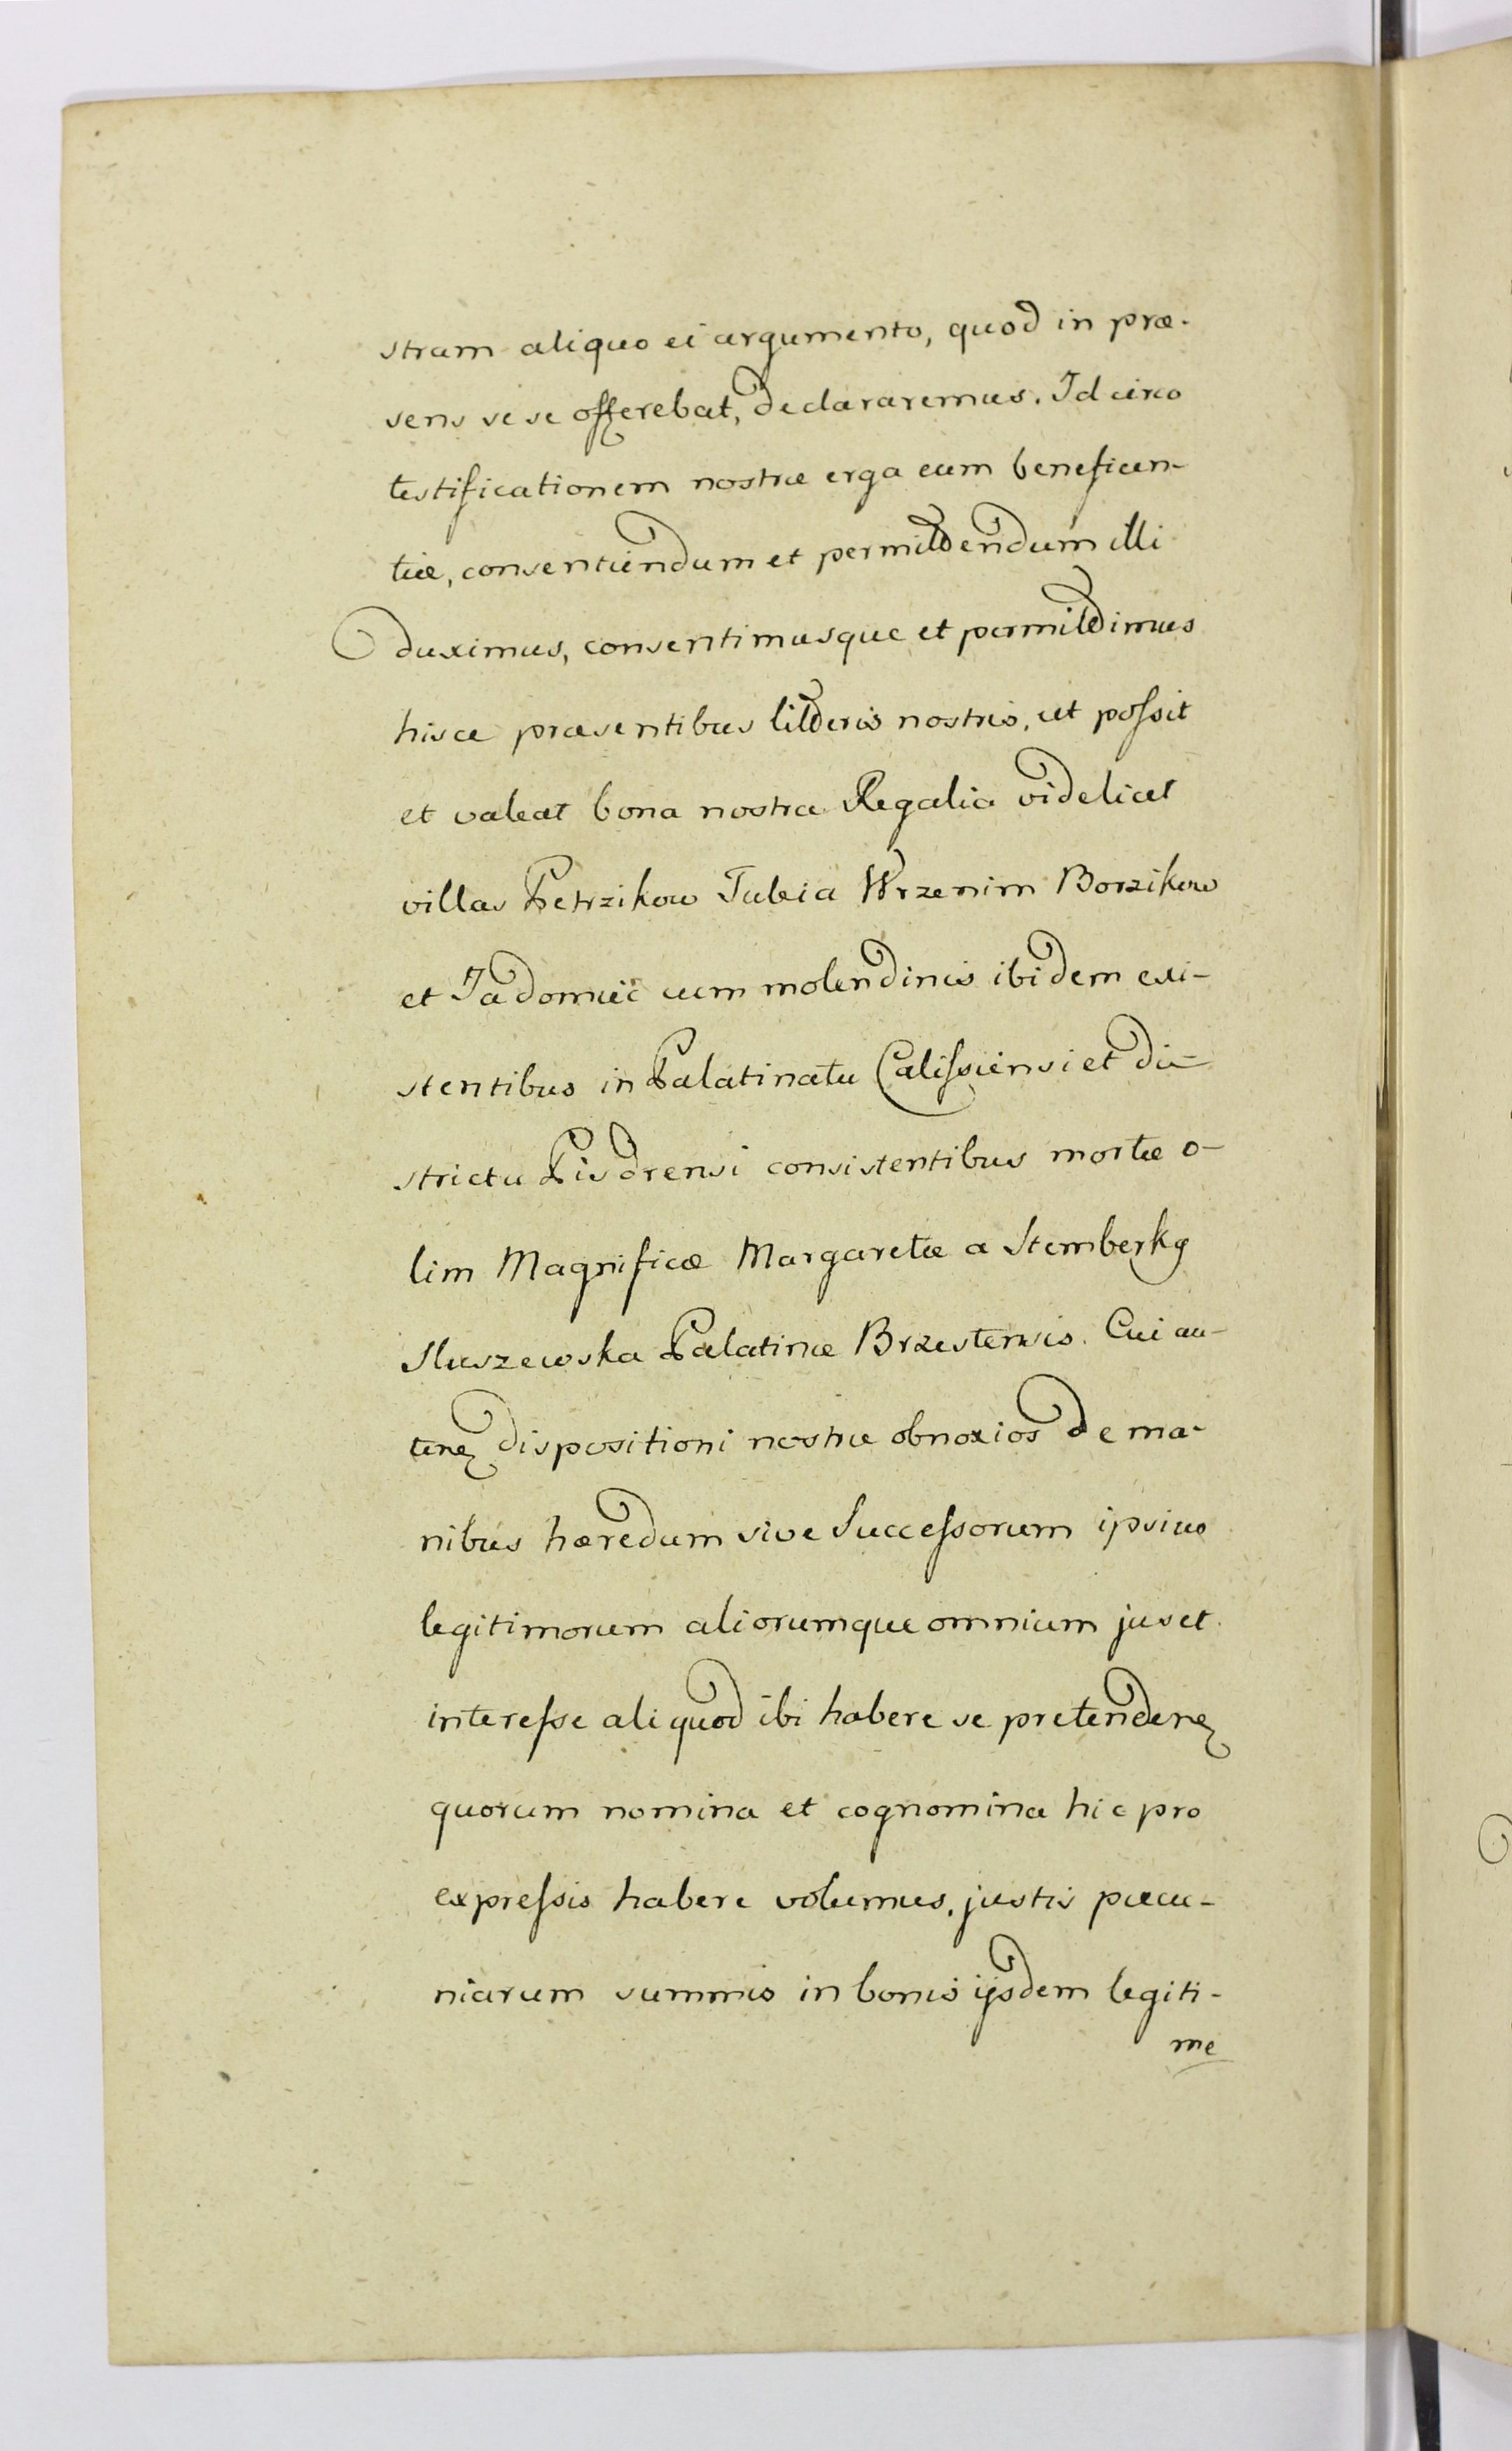 stram aliquo ei argumento, quod in præ-
sens se se offerebat, declararemus. Id circo
testificationem nostræ erga eum beneficen-
tiæ, consentiendum et permittendum illi
duximus, consentimusque et permittimus
hisce præsentibus litteris nostris, ut possit
et valeat bona nostra Regalia videlicet
villas Petrzikow Tuleia Wrzenim Borzikow
et Jadomiec cum molendinis ibidem exi-
stentibus in Palatinatu Calissiensi et di-
strictu Pisdrensi consistentibus mortæ o-
lim Magnificæ Margaretæ a Stemberkg
Sluszewska Palatinæ Brzestensis. Cui au-
tenꝫ dispositioni nostræ obnoxios de ma-
nibus hæredum sive Successorum ipsius
legitimorum aliorumque omnium jus et
interesse aliquod ibi habere se pretendenꝫ
quorum nomina et cognomina hic pro
expressis habere volumus, justis pecu-
niarum summis in bonis ijsdem legiti-
me